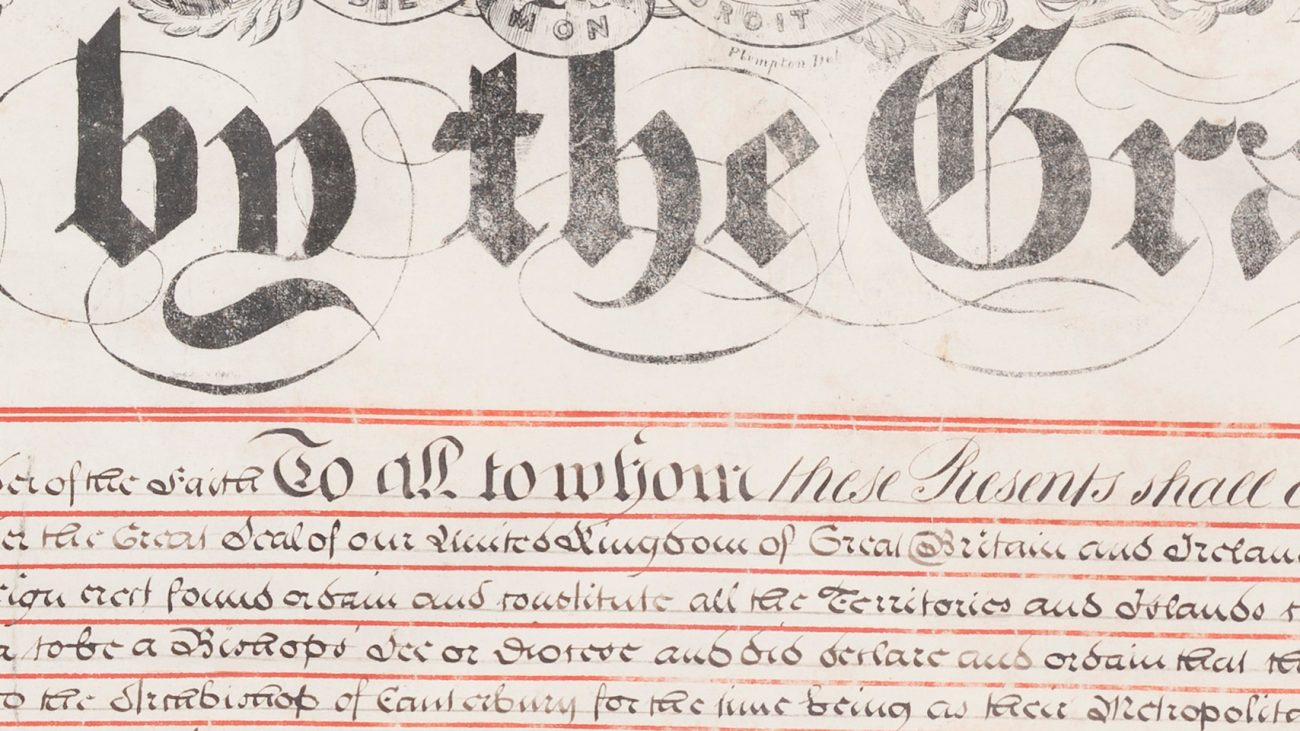 MON
DROIT
Plimpton Del
by the Gra
der of the Faith To all to whom these Presents shall
the Great Seal of our United Kingdom of Great Britain and Ireland
erect found ordain and constitute all the Territories and Islands
to be a Bishops See or Diocese and did declare and ordain that
to the Archbishop of Canterbury for the time being as their Metropolita